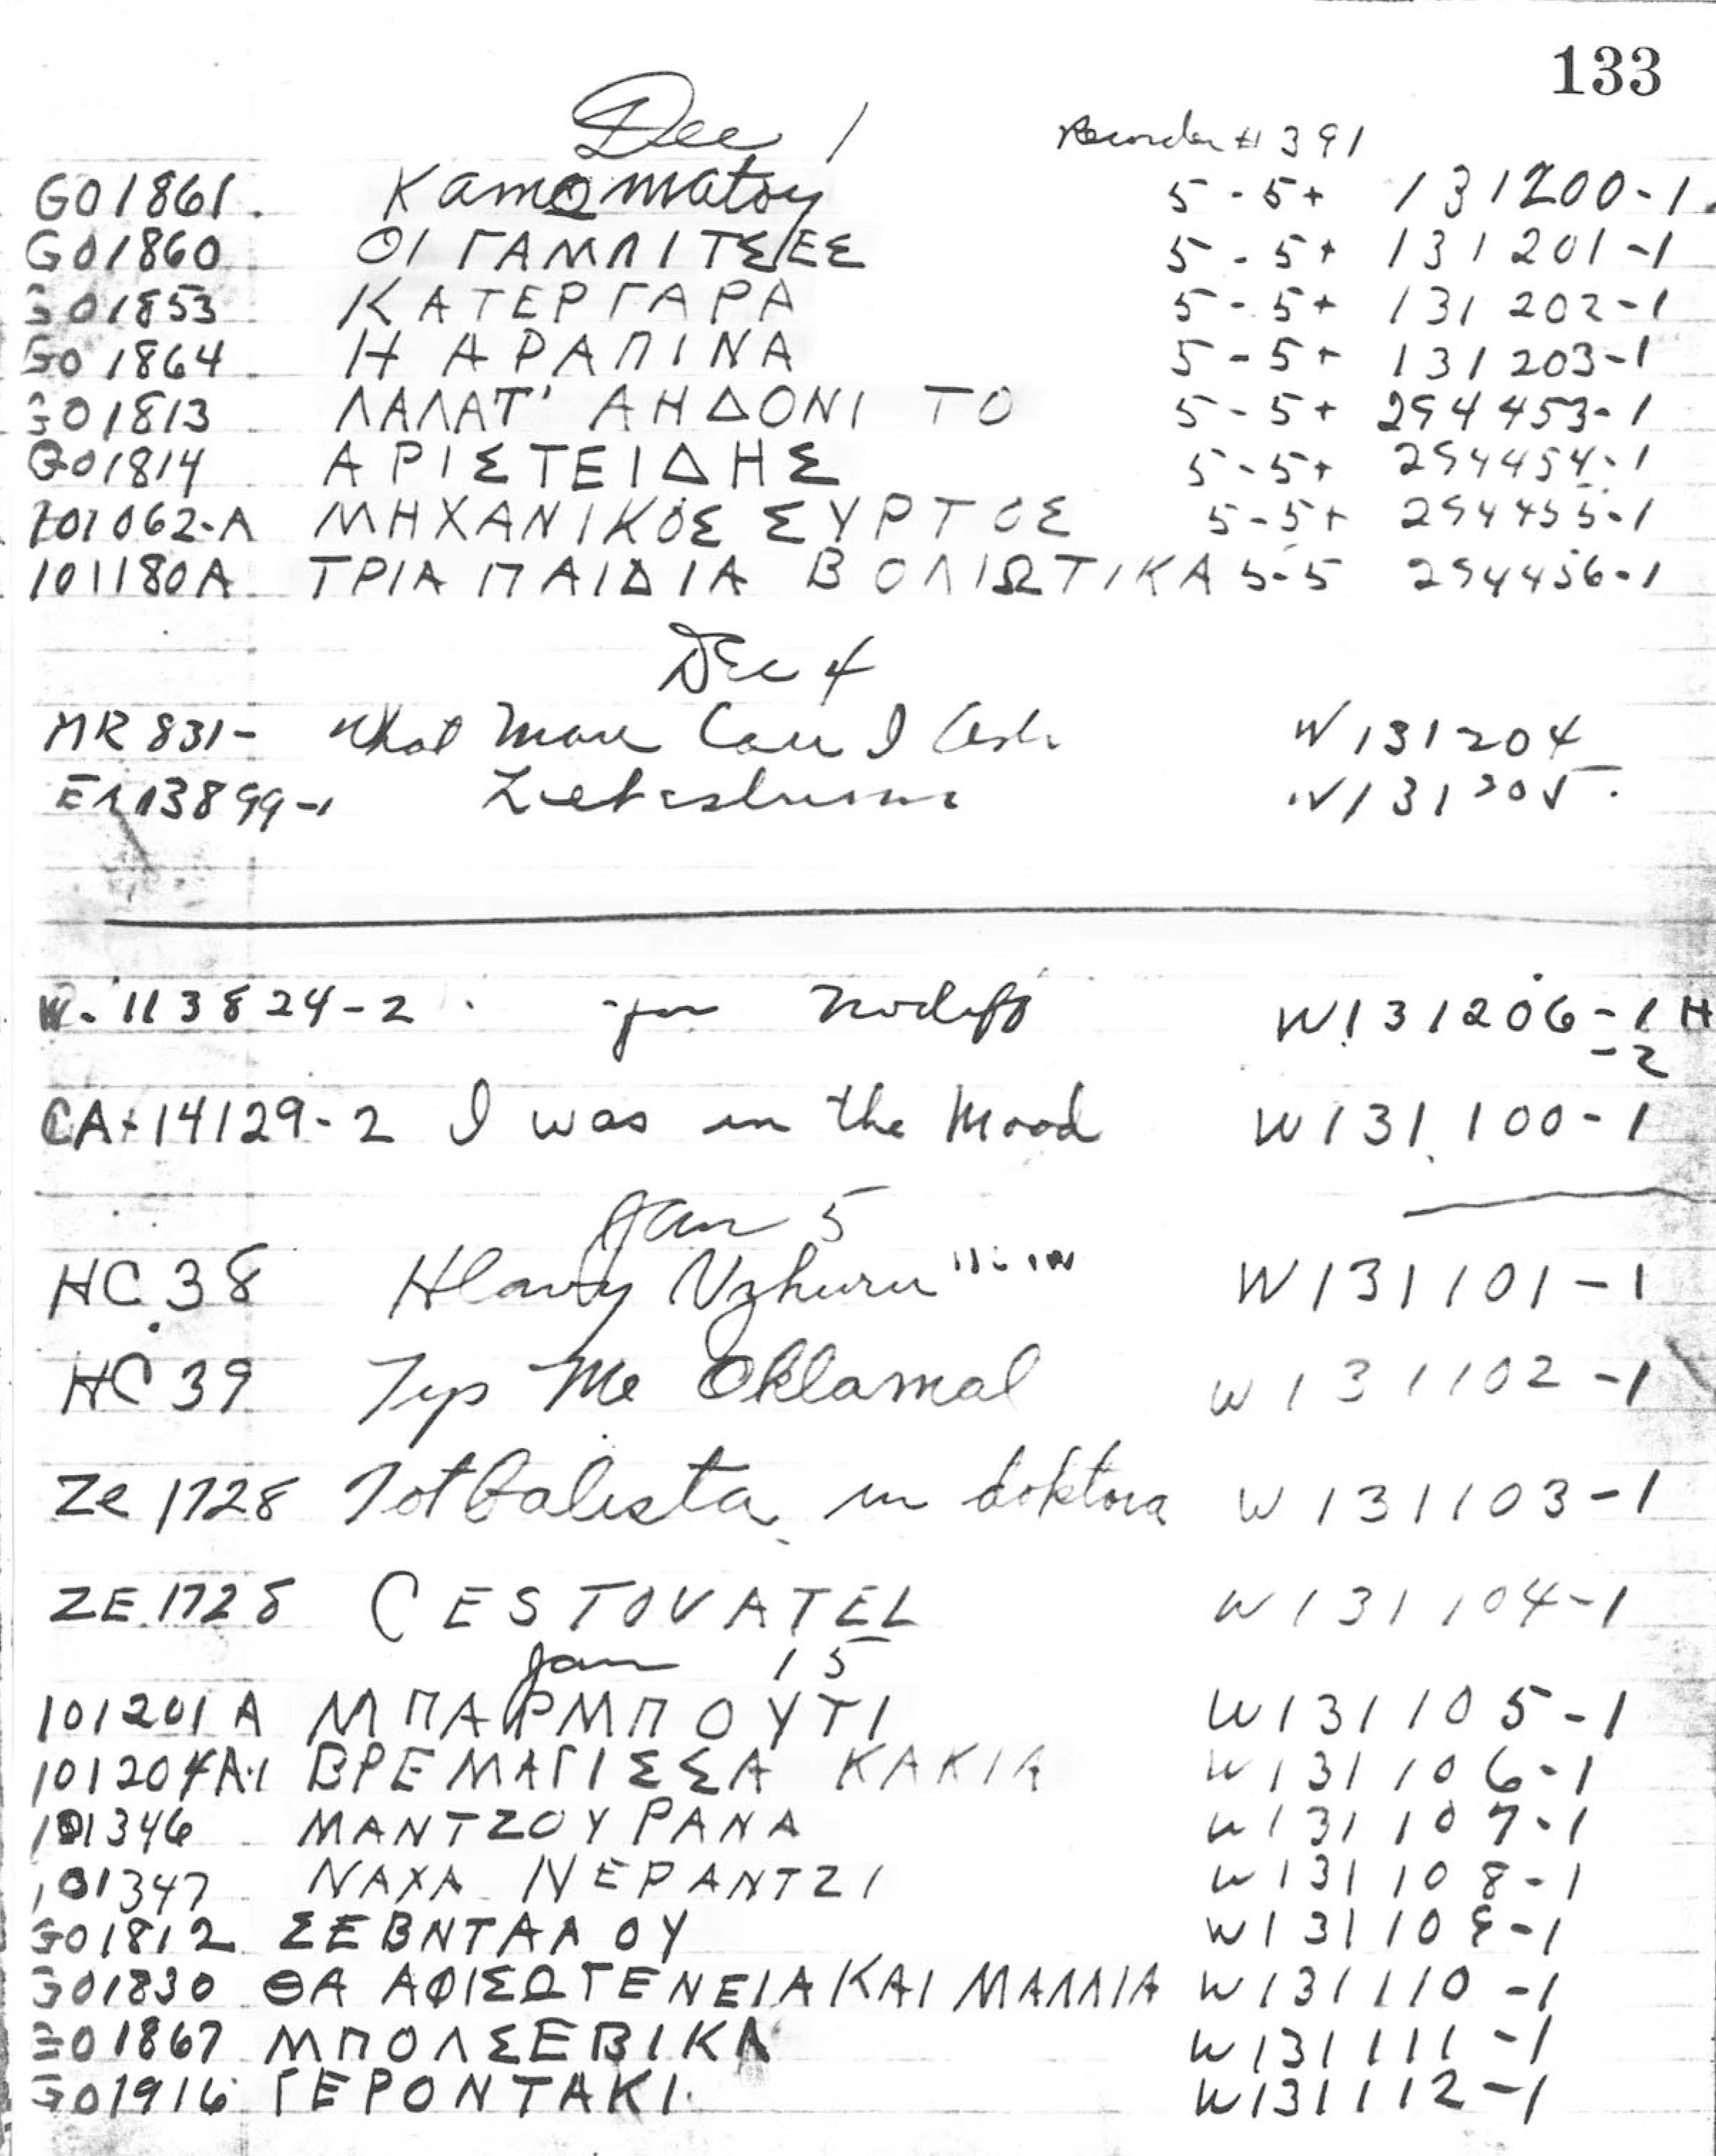 133
Dec 1
Recorder # 391
GO1861. Kamomatoy 5-5+ 131200-1.
GO1860 ΟΙ ΓΑΜΠΙΤΣΕΣ 5-5+ 131201-1
GO1853 ΚΑΤΕΡΓΑΡΑ 5-5+ 131202-1
GO1864 Η ΑΡΑΠΙΝΑ 5-5+ 131203-1
GO1813 ΛΑΛΑΤ' ΑΗΔΟΝΙ ΤΟ 5-5+ 294453-1
GO1814 ΑΡΙΣΤΕΙΔΗΣ 5-5+ 294454-1
101062-A ΜΗΧΑΝΙΚΟΣ ΣΥΡΤΟΣ 5-5+ 294455-1
101180A ΤΡΙΑ ΠΑΙΔΙΑ ΒΟΛΙΩΤΙΚΑ 5-5 294456-1
Dec 4
MR 831- What More Can I Ask W131204
13899-1 W131205.
W. 113824-2 W131206-1 H
-2
CA+14129-2 I was in the Mood W131100-1
Jan 5
HC 38 Hlavy Vzhuru W131101-1
HC 39 Typ Me Oklamal W131102-1
Ze 1728 Fotbalista doktora W131103-1
ZE.1728 CESTOVATEL W131104-1
Jan 15
101201A ΜΠΑΡΜΠΟΥΤΙ W131105-1
101204A-1 ΒΡΕ ΜΑΓΙΣΣΑ ΚΑΚΙΑ W131106-1
101346 ΜΑΝΤΖΟΥΡΑΝΑ W131107-1
101347 ΝΑΧΑ ΝΕΡΑΝΤΖΙ W131108-1
GO1812 ΣΕΒΝΤΑΛΟΥ W131109-1
GO1830 ΘΑ ΑΦΙΣΩ ΓΕΝΕΙΑ ΚΑΙ ΜΑΛΛΙΑ W131110-1
GO1867 ΜΠΟΛΣΕΒΙΚΑ W131111-1
GO1916 ΓΕΡΟΝΤΑΚΙ. W131112-1